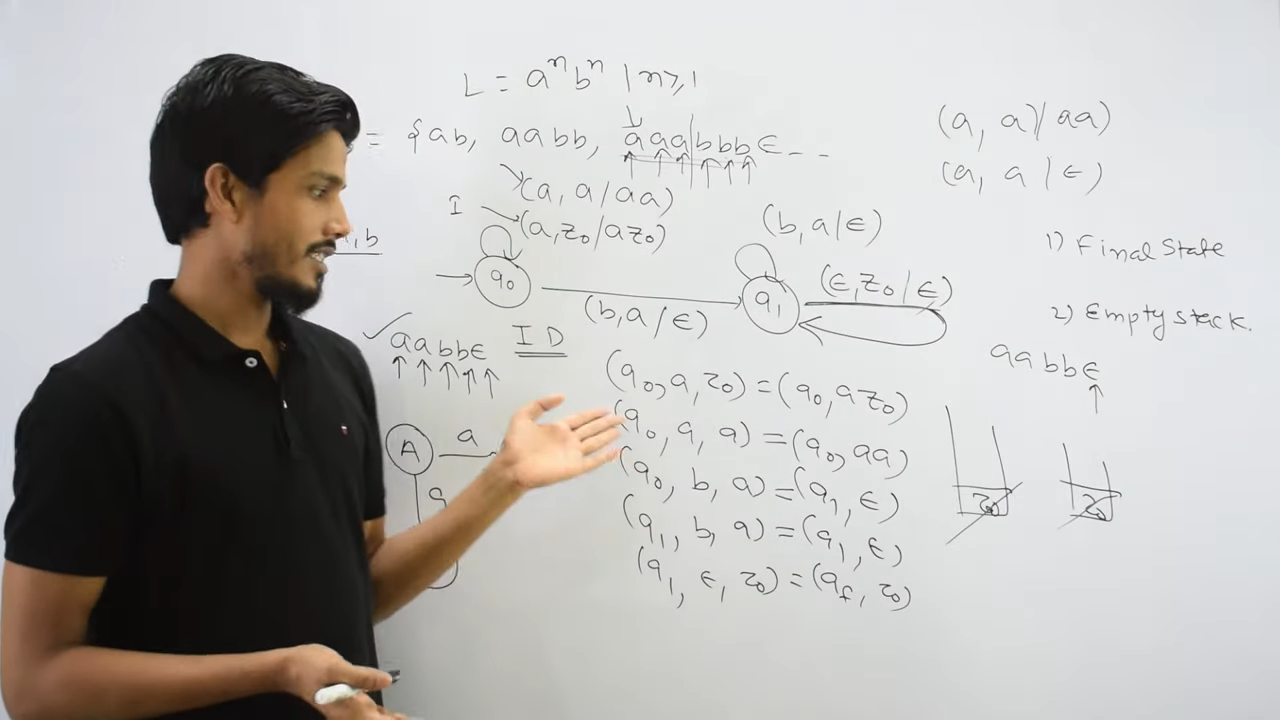 L = aⁿbⁿ | n≥1
= {ab, aabb, aaa|bbbϵ - -
(a, a/aa)
I (a, z₀/az₀)
, b
q₀
(b, a/ϵ)
(b, a|ϵ)
q₁
(ϵ, z₀|ϵ)
✓aabbϵ
ID
A a
a
(q₀, a, z₀) = (q₀, az₀)
(q₀, a, a) = (q₀, aa)
(q₀, b, a) = (q₁, ϵ)
(q₁, b, a) = (q₁, ϵ)
(q₁, ϵ, z₀) = (qf, z₀)
(a, a/aa)
(a, a | ϵ)
1) Final State
2) Empty stack.
aabbϵ
z₀ z₀